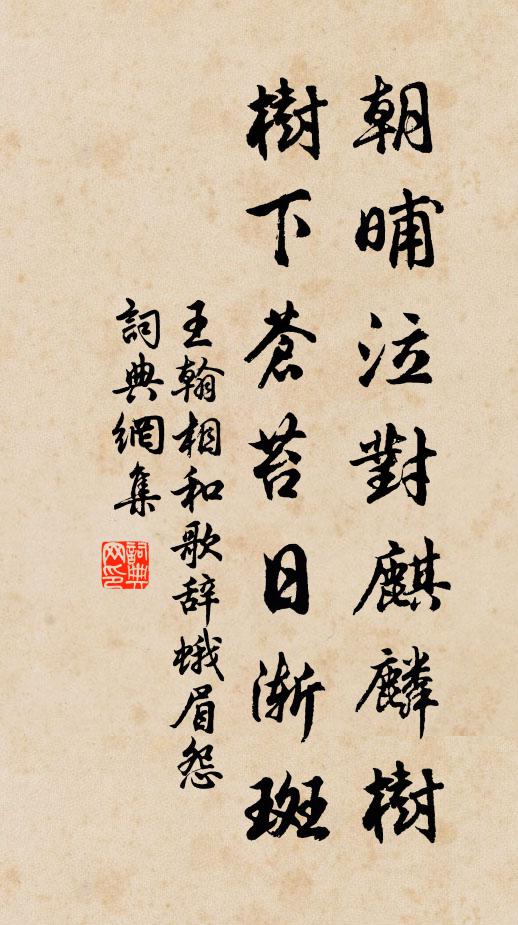 朝晡泣對麒麟樹
樹下蒼苔日漸斑
王翰相和歌辞蛾眉怨
詞典網集
詞典网印